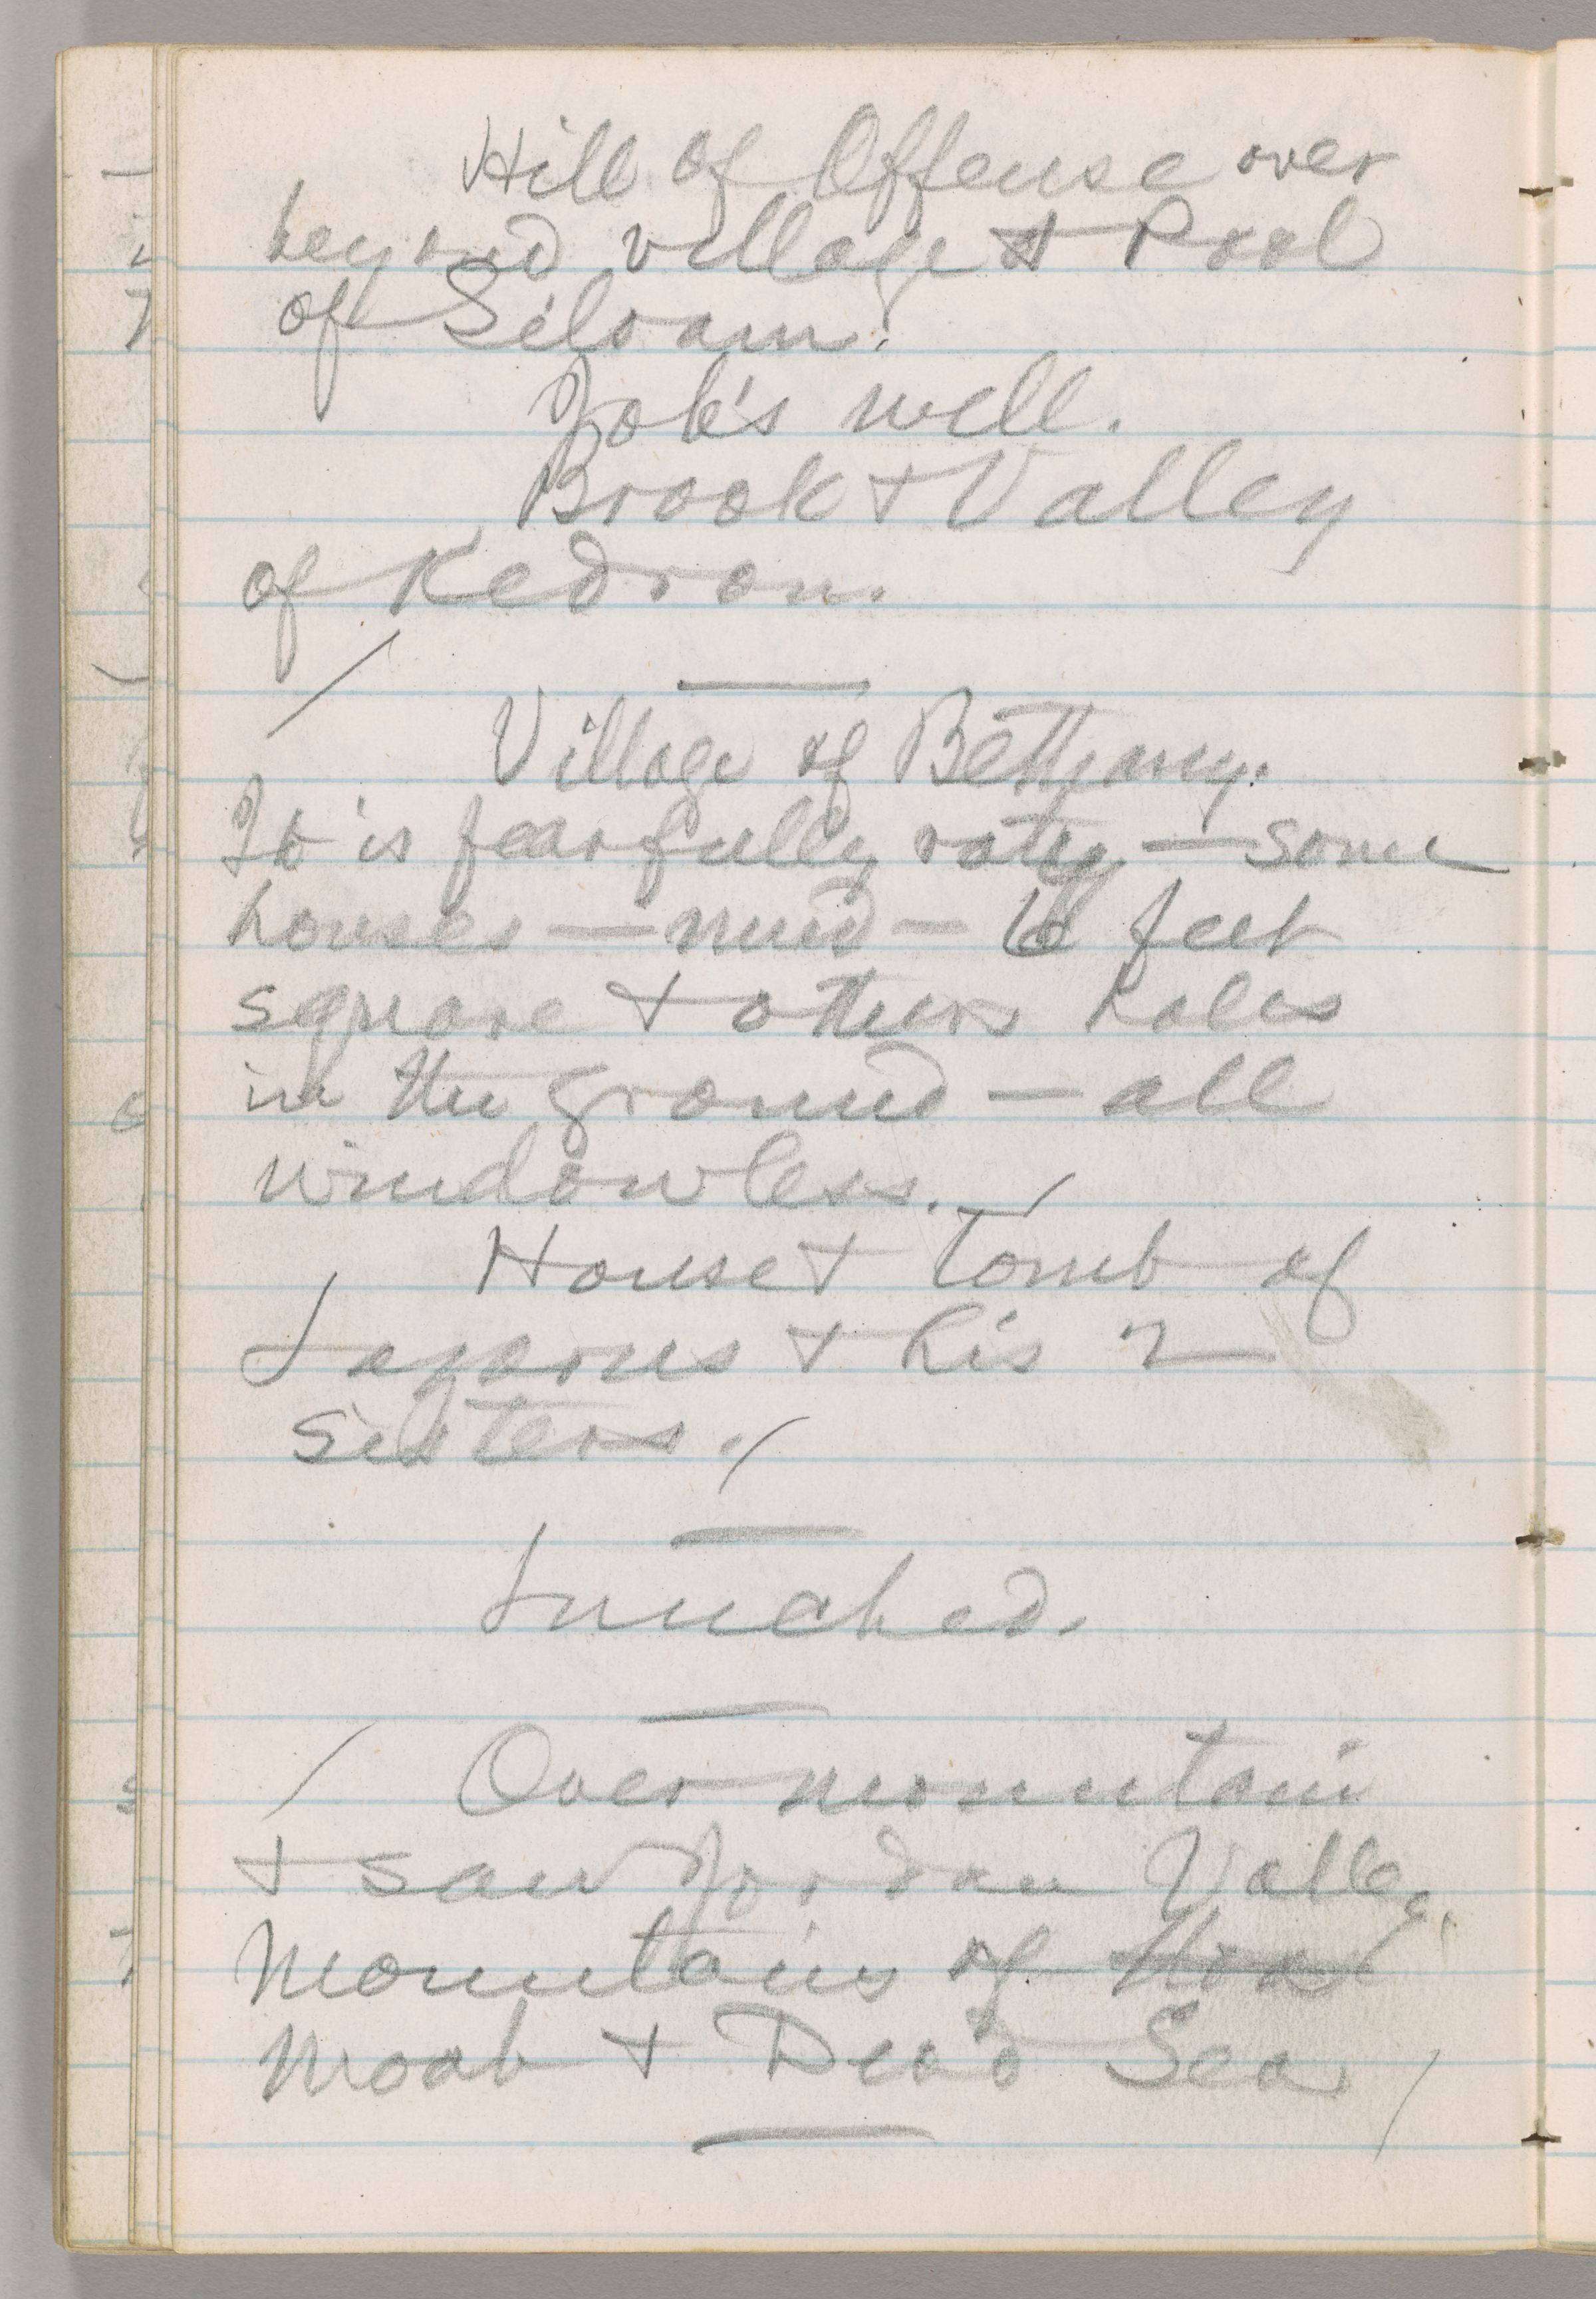 Hill of Offense over
beyond village & Pool
of Siloam.
Job's well.
Brook & Valley
of Kedron.
Village of Bethany.
It is fearfully ratty — some
houses — mud — 6 feet
square & others holes
in the ground — all
windowless.
House & tomb of
Lazarus & his 2
sisters.
Lunched.
Over mountain
& saw Jordan Valley,
Mountains of
Moab & Dead Sea